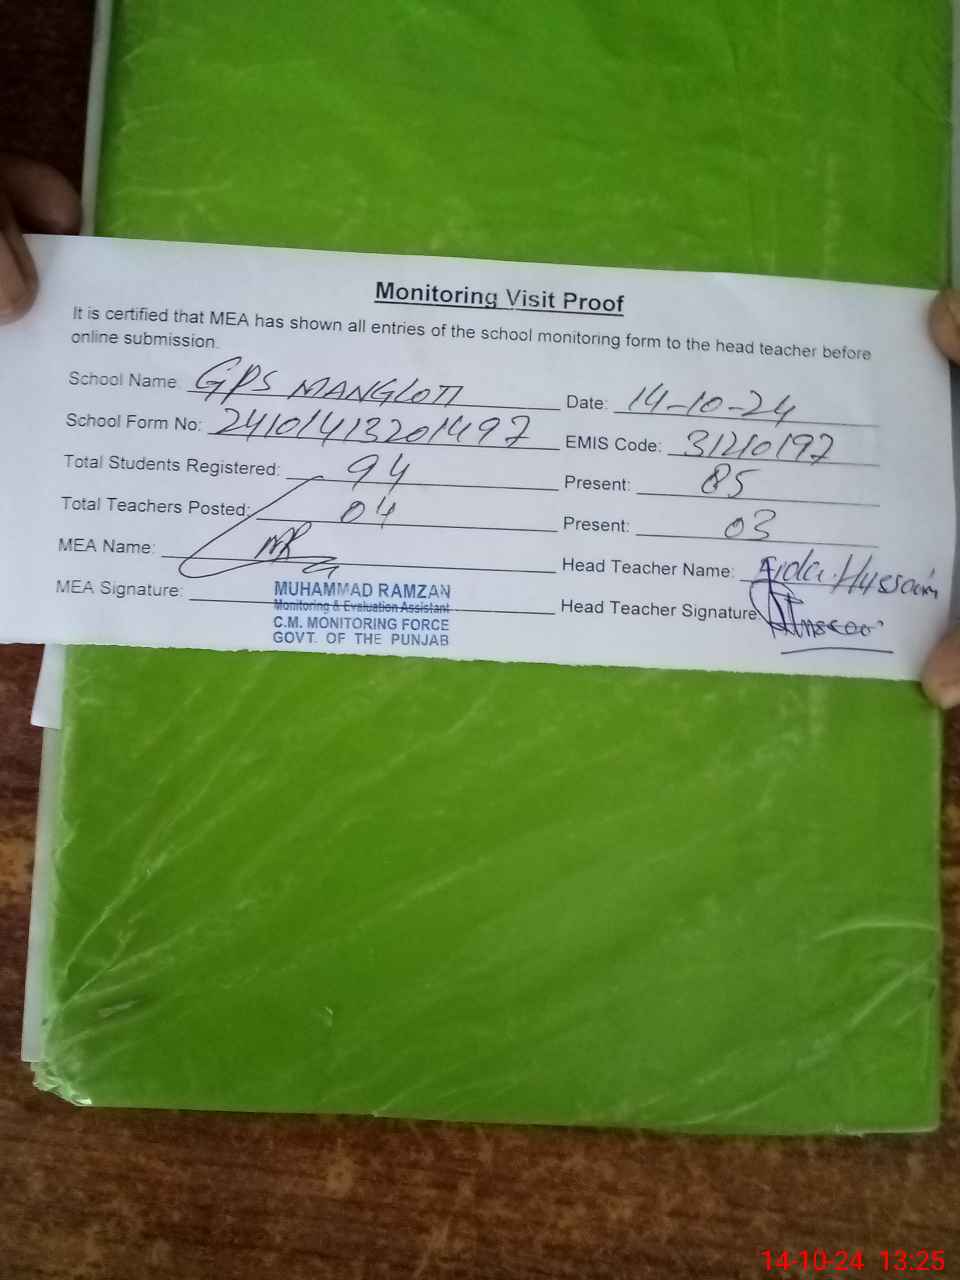 Monitoring Visit Proof
It is certified that MEA has shown all entries of the school monitoring form to the head teacher before
online submission.
School Name: GPS MANGLOTI Date: 14-10-24
School Form No: 24101413201497 EMIS Code: 31210197
Total Students Registered: 94 Present: 85
Total Teachers Posted: 04 Present: 03
MEA Name: Head Teacher Name: Hussain
MEA Signature: Head Teacher Signature
MUHAMMAD RAMZAN
Monitoring & Evaluation Assistant
C.M. MONITORING FORCE
GOVT. OF THE PUNJAB
14-10-24 13:25